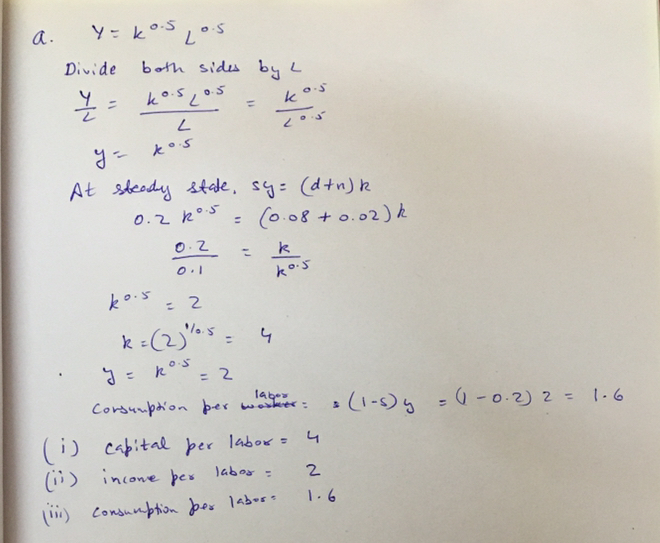 a. Y = K^0.5 L^0.5
Divide both sides by L
Y/L = K^0.5 L^0.5 / L = K^0.5 / L^0.5
y = k^0.5
At steady state, sy = (d+n)k
0.2 k^0.5 = (0.08 + 0.02)k
0.2/0.1 = k/k^0.5
k^0.5 = 2
k = (2)^1/0.5 = 4
y = k^0.5 = 2
Consumption per labor = = (1-s)y = (1-0.2) 2 = 1.6
(i) capital per labor = 4
(ii) income per labor = 2
(iii) Consumption per labor = 1.6